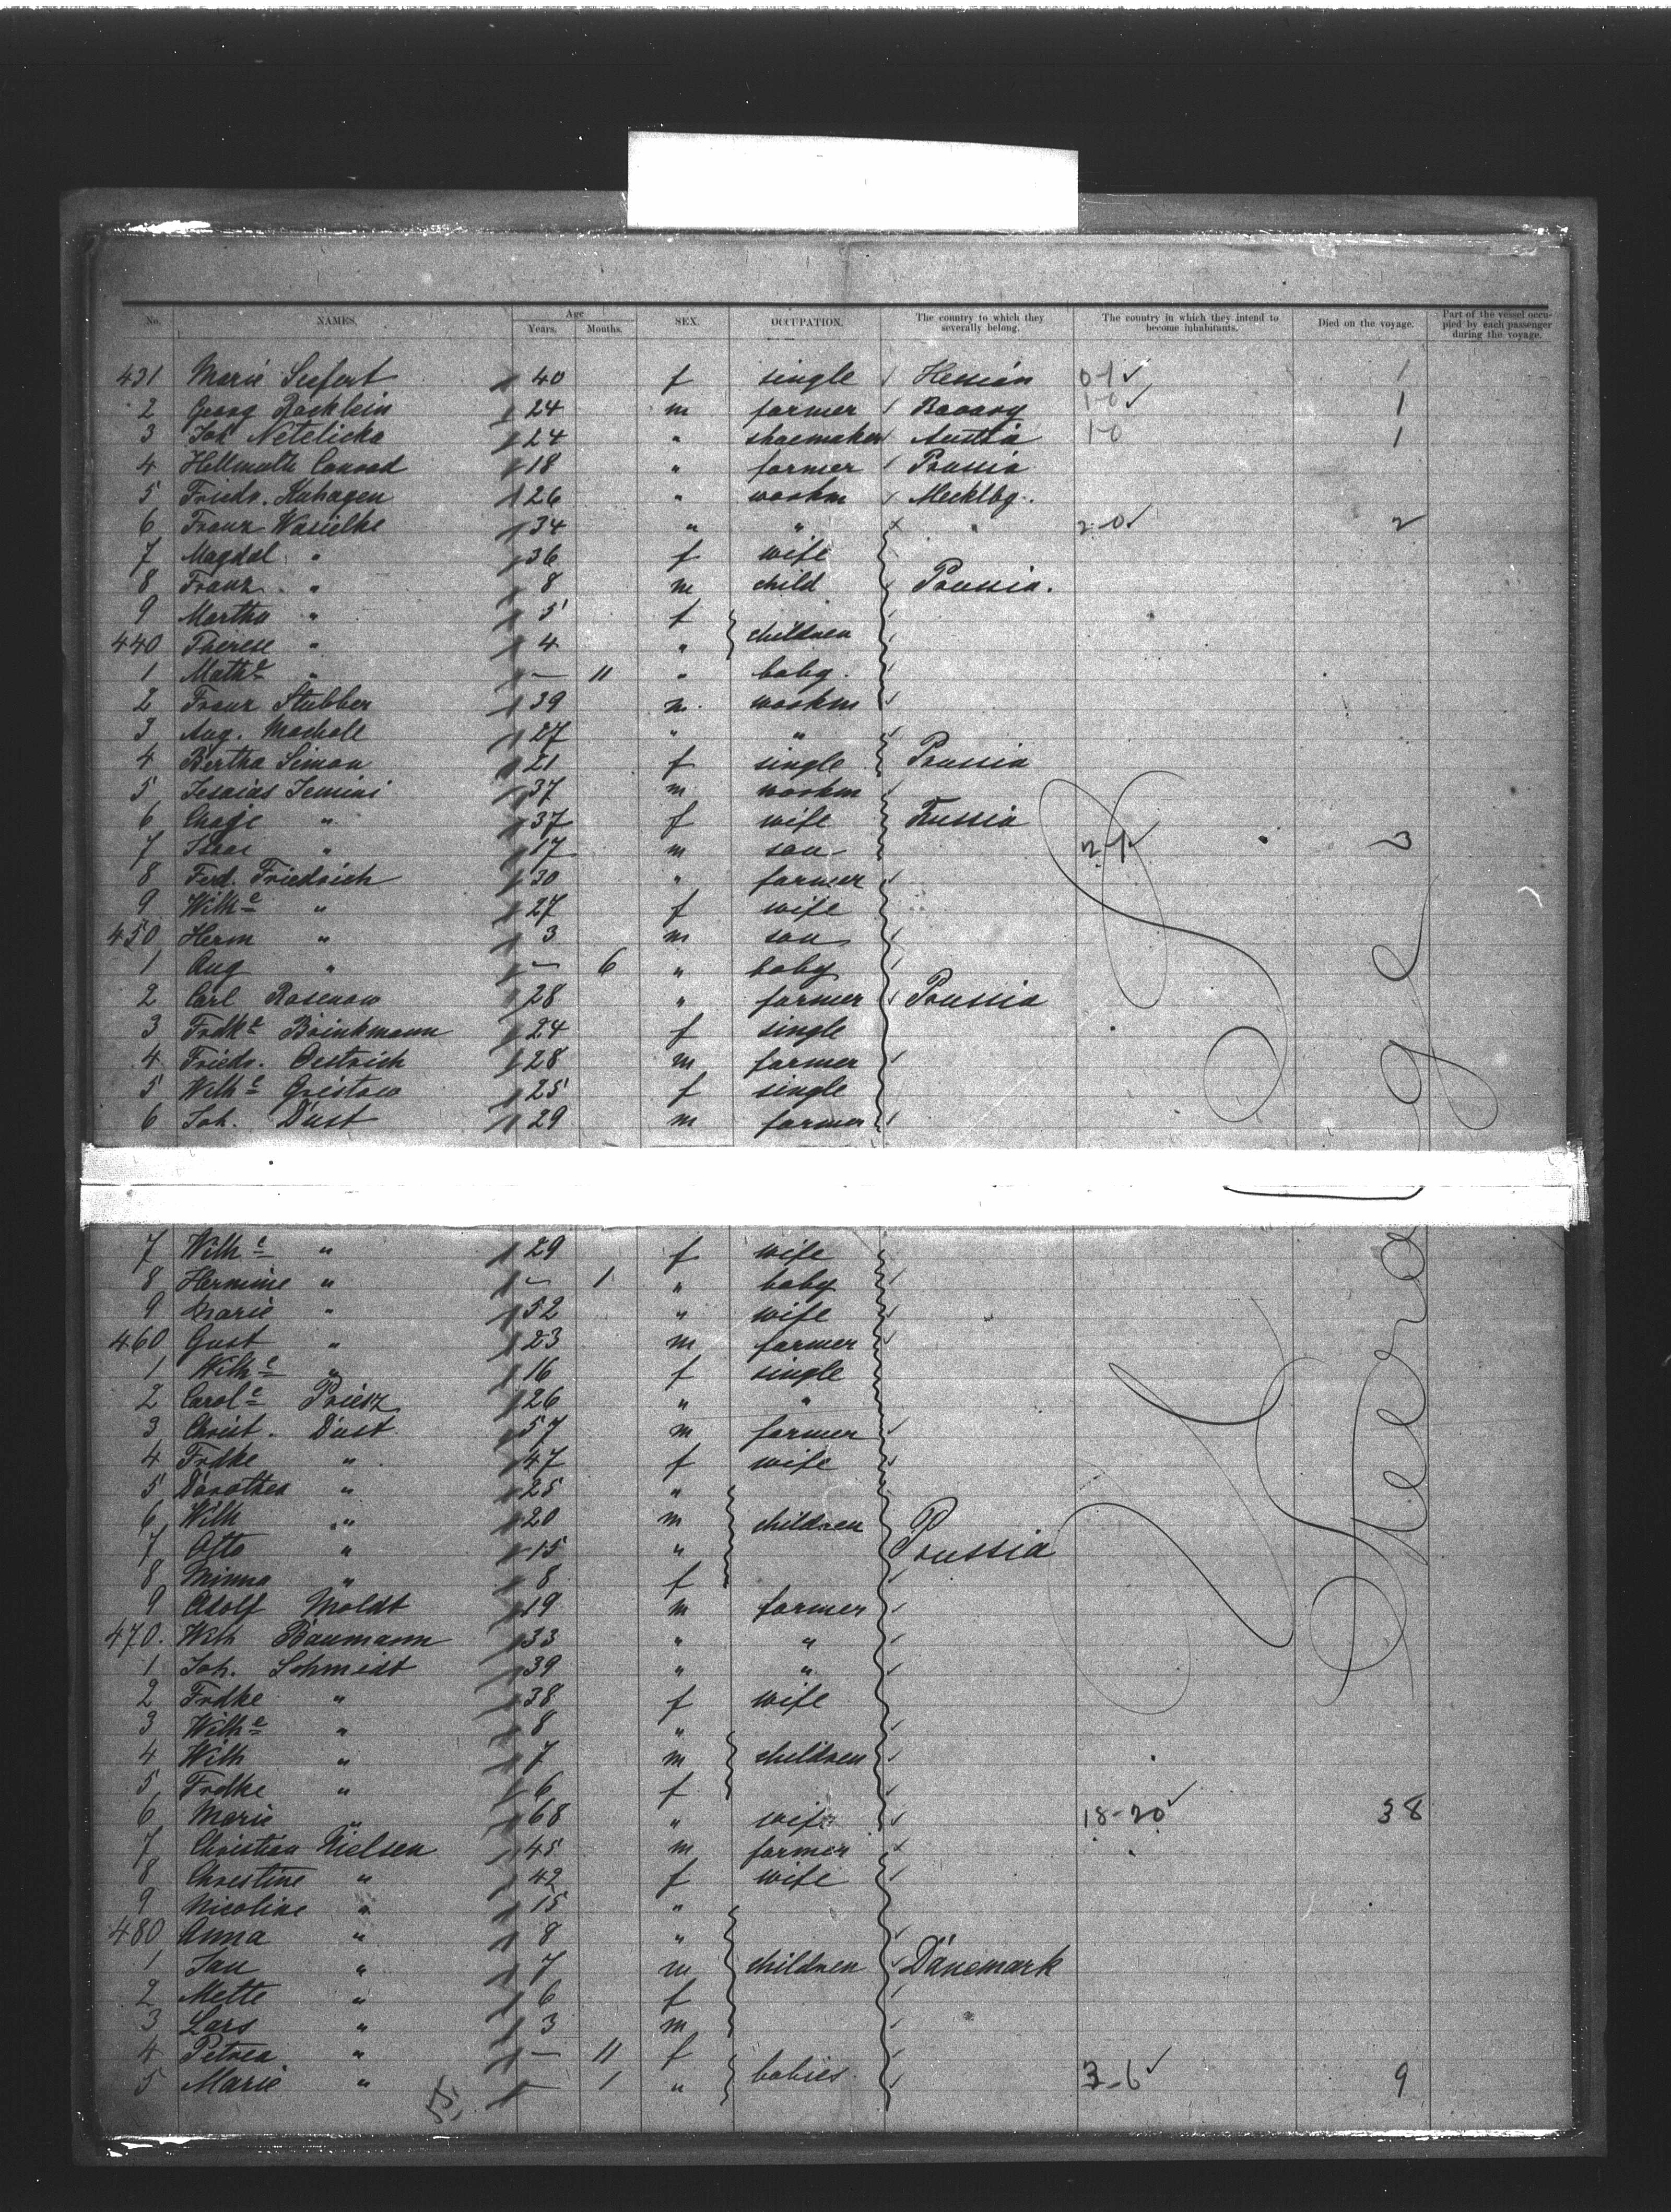 No. NAMES. Age Years. Months. SEX. OCCUPATION. The country to which they severally belong. The country in which they intend to become inhabitants. Died on the voyage. Part of the vessel occupied by each passenger during the voyage.
431 Marie Seefert 40 f single Hessian 0-1 1
2 Georg Röcklein 24 m farmer Bavary 1-0 1
3 Joh Netelicka 24 " shoemaker Austia 1-0 1
4 Hellmuth Conrad 18 " farmer Prussia
5 Friedr. Kuhagen 26 " workm Mecklbg.
6 Franz Wasielke 34 " " " 2-0 2
7 Magdal " 36 f wife
8 Franz " 8 m child Prussia.
9 Martha " 5 f
440 Therese " 4 " children
1 Mathe " — 11 " baby
2 Franz Stubber 39 m workm
3 Aug. Macholl 27 " "
4 Bertha Simon 21 f single Prussia
5 Jesaias Jemini 37 m workm
6 Chaje " 37 f wife Russia
7 Isaac " 17 m son 2-1 3
8 Ferd. Friedrich 30 " farmer
9 Wilhe " 27 f wife
450 Herm " 3 m son
1 Aug " — 6 " baby
2 Carl Rosenow 28 " farmer Prussia
3 Frdke Brinkmann 24 f single
4 Friedr. Oestrich 28 m farmer
5 Wilhe Gristow 25 f single
6 Joh. Dust 29 m farmer
7 Wilhe " 29 f wife
8 Hermine " — 1 " baby
9 Marie " 52 " wife
460 Gust " 23 m farmer
1 Wilhe " 16 f single
2 Carole Priesz 26 " "
3 Christ. Dust 57 m farmer
4 Frdke " 47 f wife
5 Dorothea " 25 "
6 Wilh " 20 m children
7 Otto " 15 " Prussia
8 Minna " 8 f
9 Adolf Moldt 19 m farmer
470. Wilh Baumann 33 " "
1 Joh. Schmidt 39 " "
2 Frdke " 38 f wife
3 Wilhe " 8 "
4 Wilh " 7 m children
5 Frdke " 6 f
6 Marie " 68 " wife 18-20 38
7 Christian Nielsen 45 m farmer
8 Christine " 42 f wife
9 Nicoline " 15 "
480 Anna " 8 "
1 Jan " 7 m children Dänemark
2 Mette " 6 f
3 Lars " 3 m
4 Petrea " — 11 f
5 Marie " — 1 " babies 3-6 9